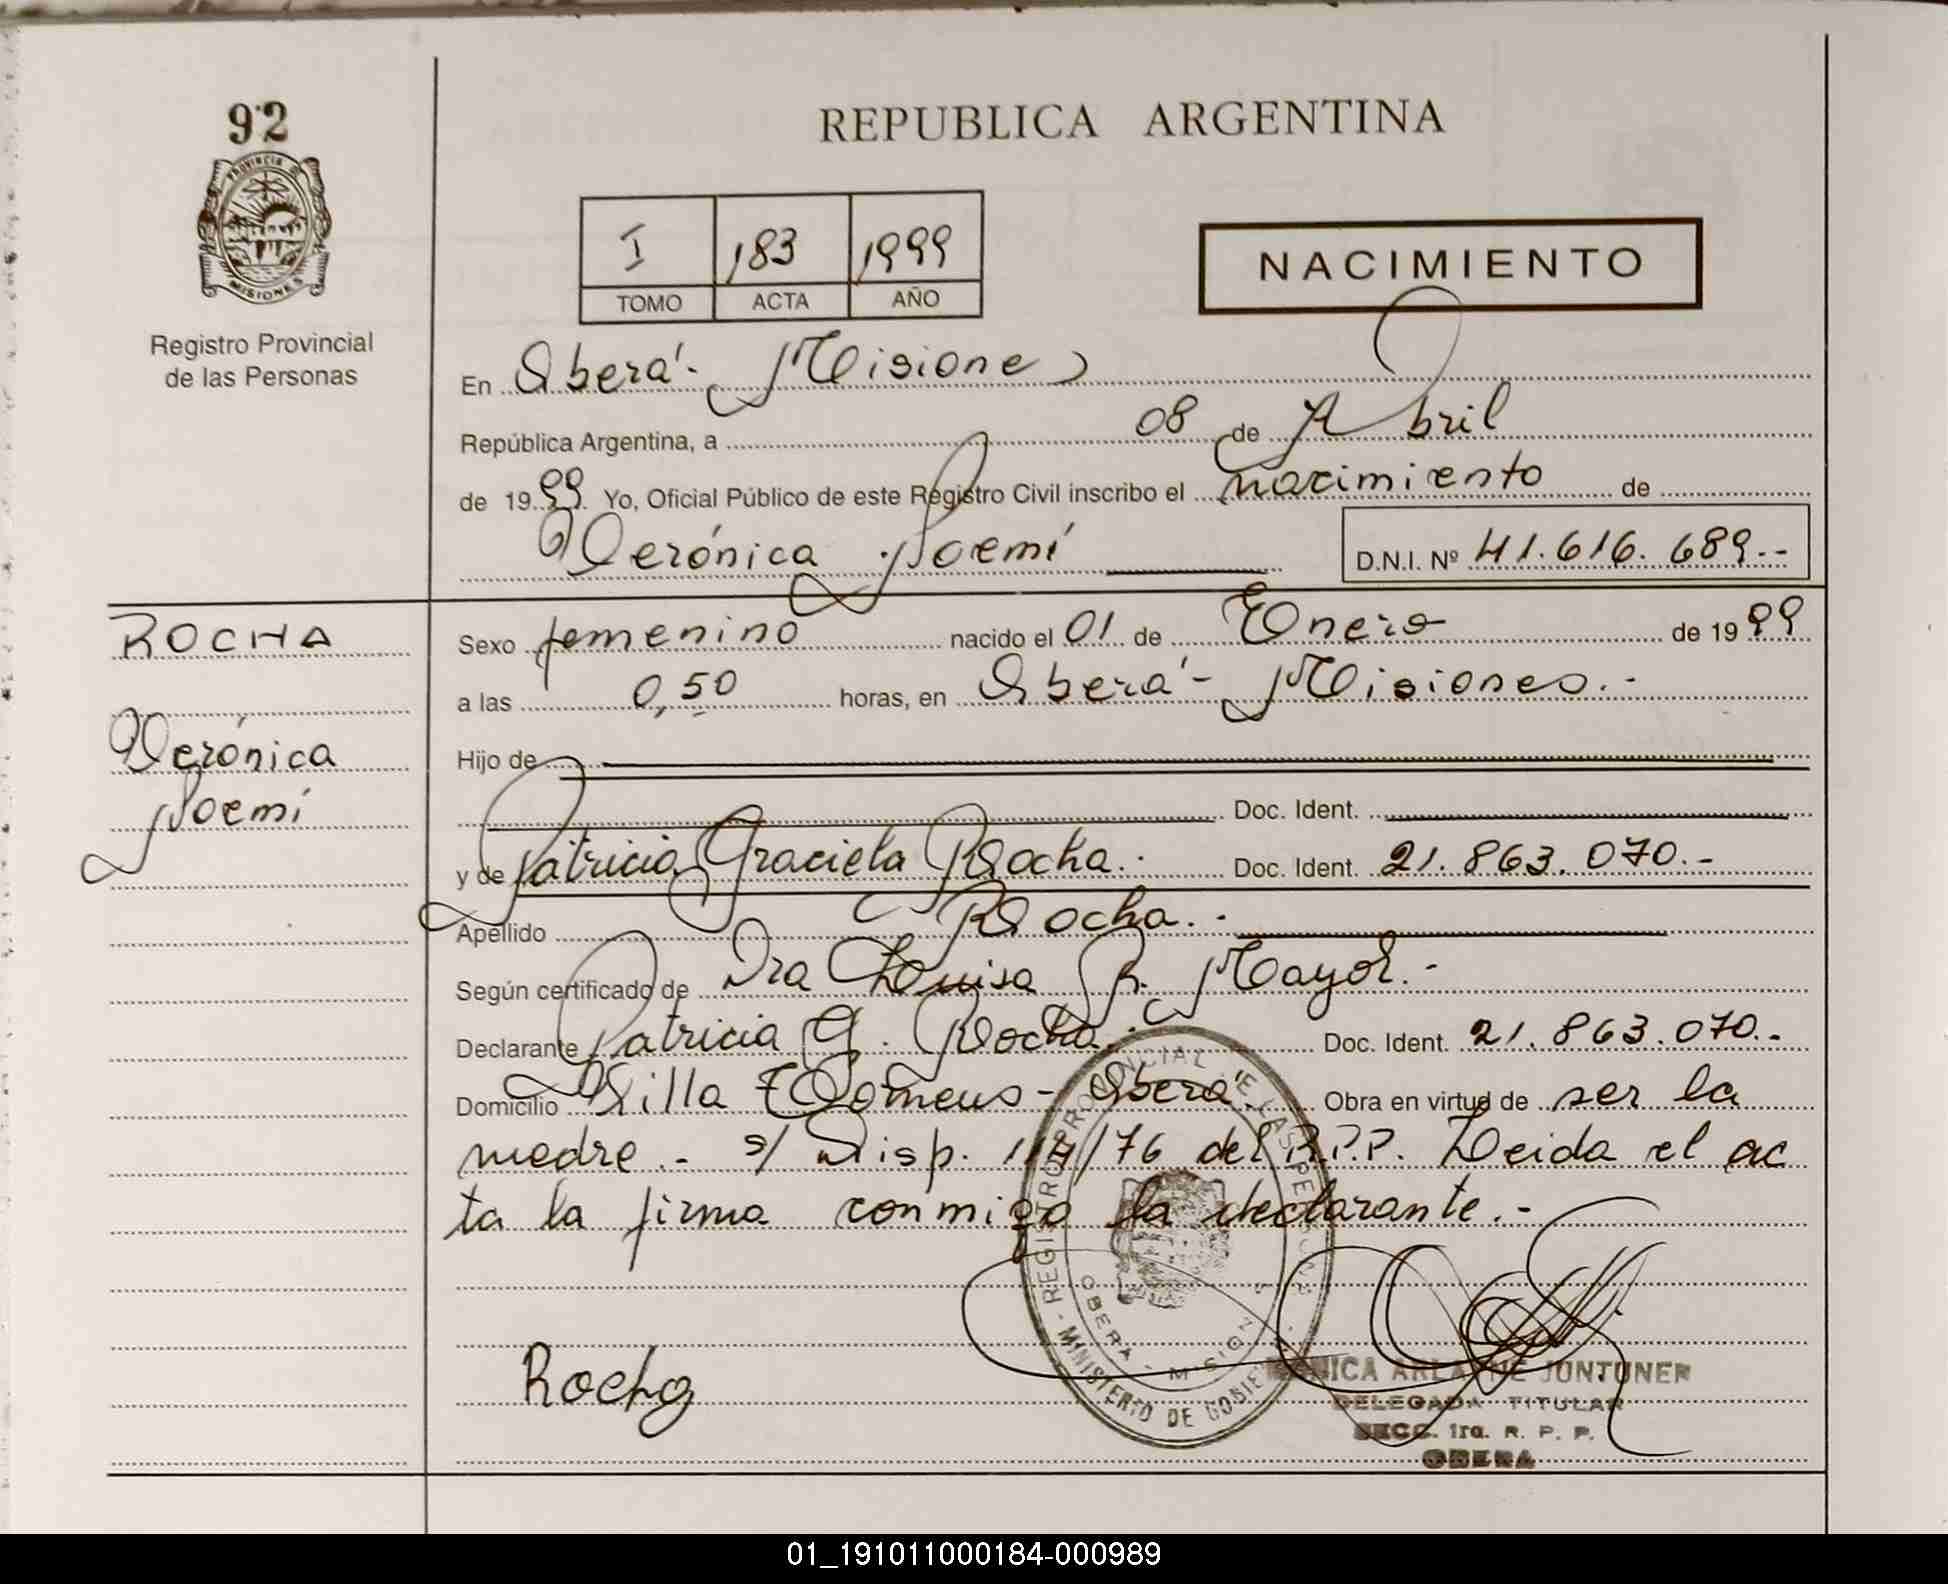 92
PROVINCIA DE
MISIONES
Registro Provincial
de las Personas
REPUBLICA ARGENTINA
I 183 1999
TOMO ACTA AÑO
NACIMIENTO
En Oberá - Misiones
República Argentina, a 08 de Abril
de 1999 Yo, Oficial Público de este Registro Civil inscribo el nacimiento de
Verónica Noemí D.N.I. Nº 41.616.689.-
ROCHA
Verónica
Noemí
Sexo femenino nacido el 01 de Enero de 1999
a las 0,50 horas, en Oberá - Misiones.-
Hijo de
Doc. Ident.
y de Patricia Graciela Rocha.- Doc. Ident. 21.863.070.-
Apellido Rocha.-
Según certificado de Dra Luisa R. Mayol.-
Declarante Patricia G. Rocha.- Doc. Ident. 21.863.070.-
Domicilio Villa - Oberá Obra en virtud de ser la
madre.- s/ Disp. /76 del R.P.P. Leida el ac
ta la firma conmigo la declarante.-
Rocha
REGISTRO PROVINCIAL DE LAS PERSONAS
- MINISTERIO DE GOBIERNO
OBERA - MISIONES
MONICA JUNTUNEN
DELEGADA TITULAR
SECC. 1ra. R. P. P.
OBERA
01_191011000184-000989